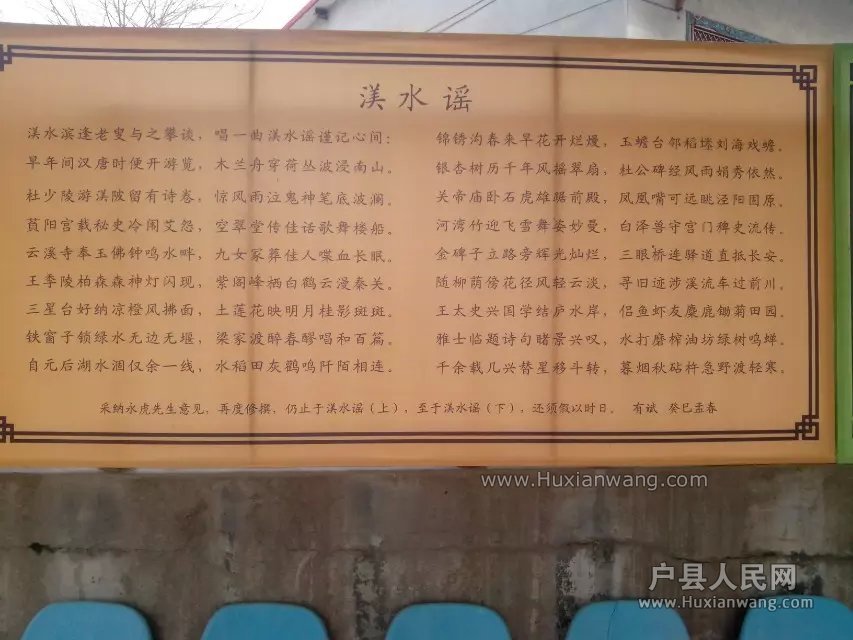 渼水谣
渼水滨逢老叟与之攀谈，唱一曲渼水谣谨记心间：
早年间汉唐时便开游览，木兰舟穿荷丛波浸南山。
杜少陵游渼陂留有诗卷，惊风雨泣鬼神笔底波澜。
萯阳宫载秘史冷闹艾怨，空翠堂传佳话歌舞楼船。
云溪寺奉玉佛钟鸣水畔，九女冢葬佳人喋血长眠。
王季陵柏森森神灯闪现，紫阁峰栖白鹤云漫秦关。
三星台好纳凉橙风拂面，土莲花映明月桂影斑斑。
铁窗子锁绿水无边无堰，梁家渡醉春醪唱和百篇。
自元后湖水涸仅余一线，水稻田灰鹳鸣阡陌相连。
锦锈沟春来早花开烂熳，玉蟾台邻稻塍刘海戏蟾。
银杏树历千年风摇翠扇，杜公碑经风雨娟秀依然。
关帝庙卧石虎雄踞前殿，凤凰嘴可远眺泾阳围原。
河湾竹迎飞雪舞姿妙曼，白泽兽守宫门稗史流传。
金碑子立路旁辉光灿烂，三眼桥连驿道直抵长安。
随柳荫傍花径风轻云淡，寻旧迹涉溪流车过前川。
王太史兴国学结庐水岸，侣鱼虾友麋鹿锄菊田园。
雅士临题诗句睹景兴叹，水打磨榨油坊绿树鸣蝉。
千余载几兴替星移斗转，暮烟秋砧杵急野渡轻寒。
采纳永虎先生意见，再度修撰，仍止于渼水谣（上），至于渼水谣（下），还须假以时日。 有斌 癸巳孟春
www.Huxianwang.com
户县人民网
www.Huxianwang.com